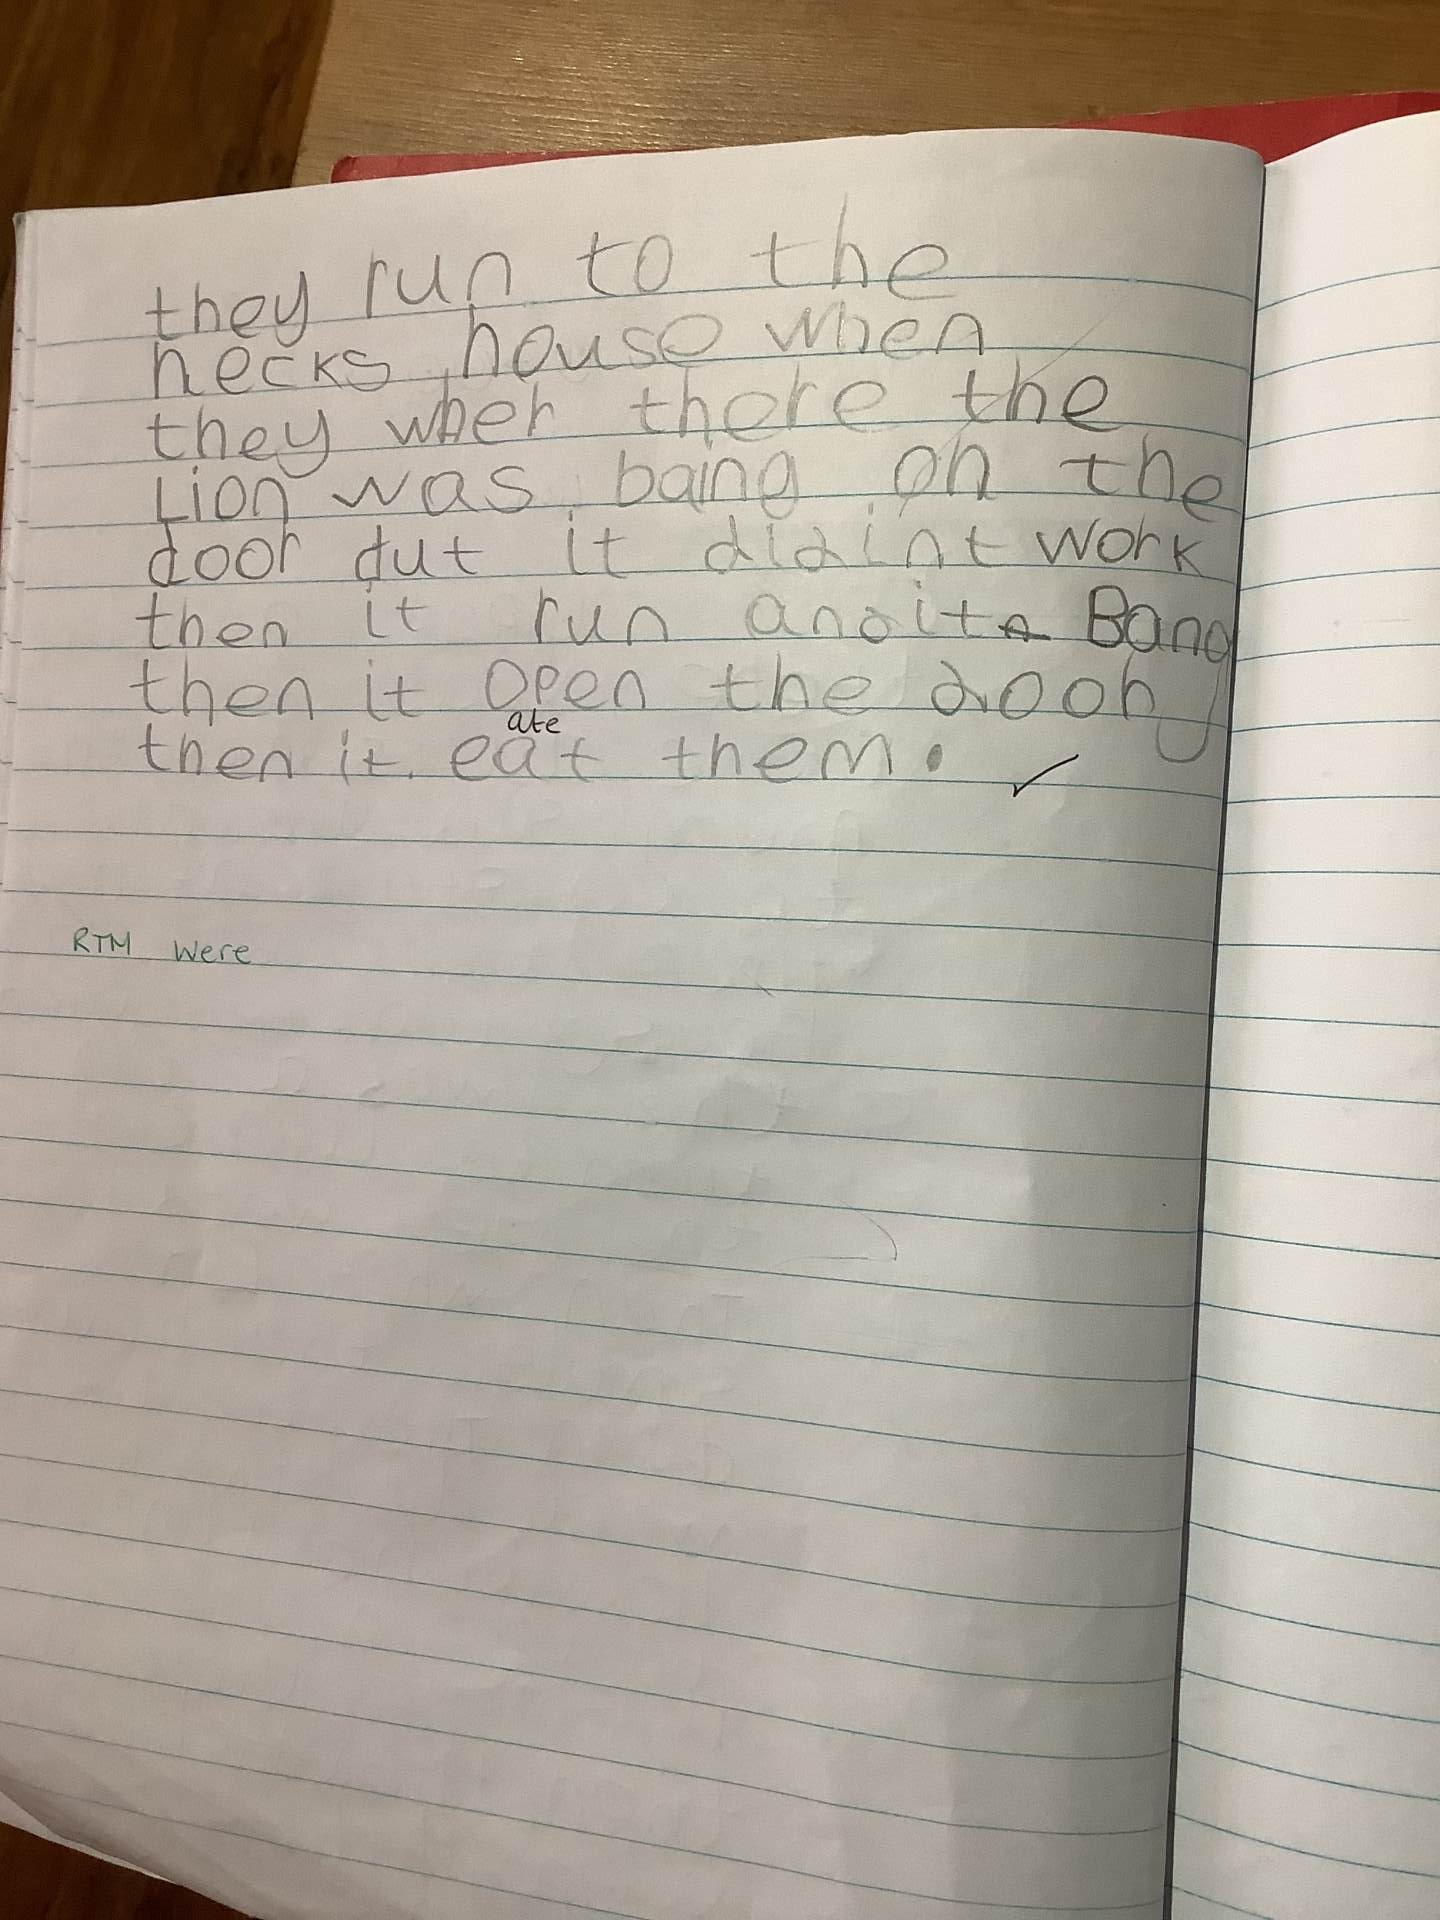 they run to the
necks house when
they wher there the
Lion was baing on the
door dut it didint work
then it run anoit Bang
then it open the dooh
ate
then it eat them.
RTM Were